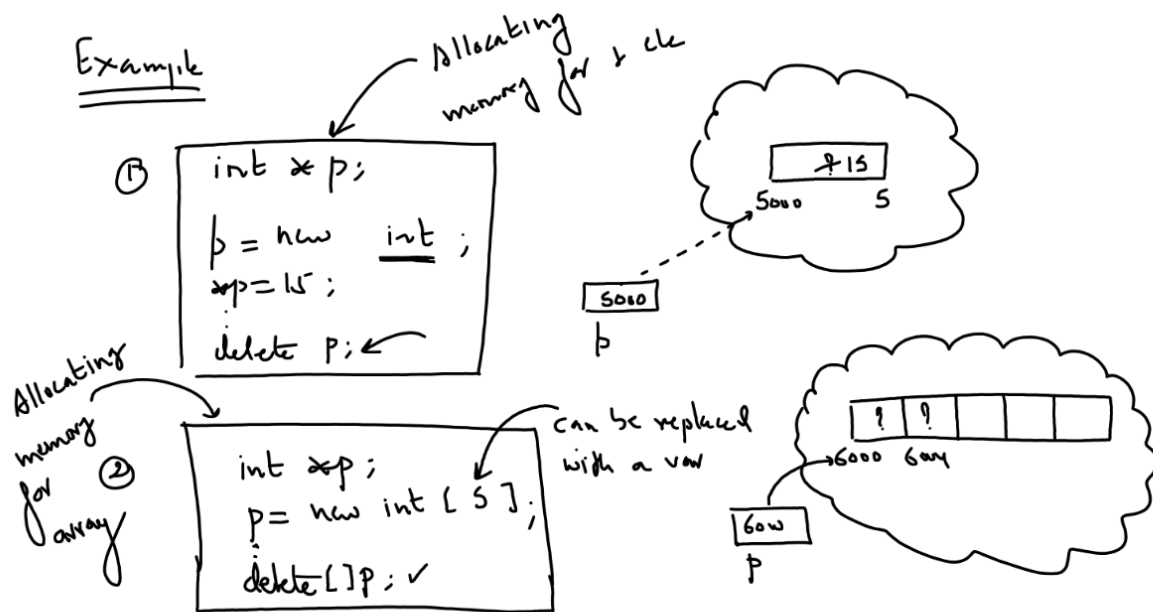 Example
Allocating
memory for 1 ele
①
int *p;
p = new int ;
*p = 15;
delete p;
? 15
5000 5
5000
p
Allocating
memory
for
array
②
int *p;
p = new int [ 5 ];
delete[]p; ✓
can be replaced
with a var
? ?
6000 6004
6000
p